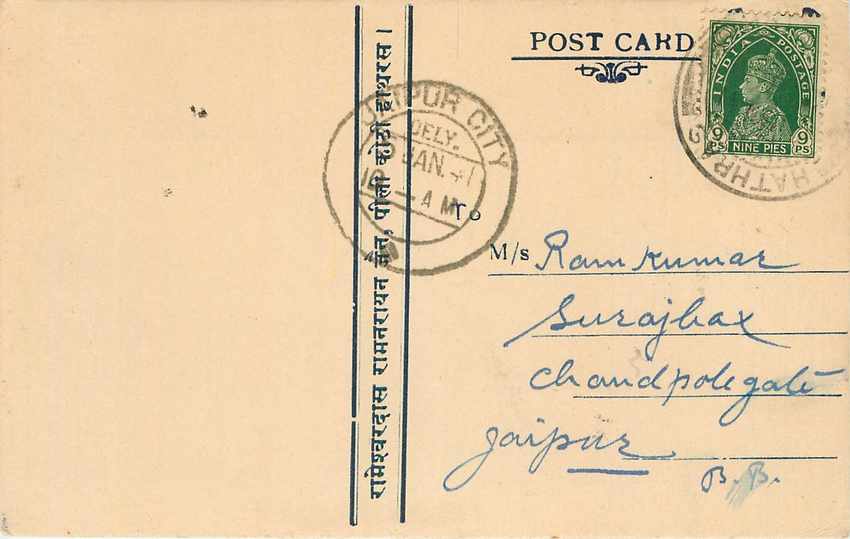 POST CARD
INDIA POSTAGE
9 PS
9 PS
NINE PIES
HATHRAS
JAIPUR CITY
DELY.
JAN. 41
10 — A M
रामेश्वरदास रामनरायन जैन, पीली कोठी हाथरस ।
To
M/s Ramkumar
Surajbax
Chandpole gate
Jaipur
B.B.